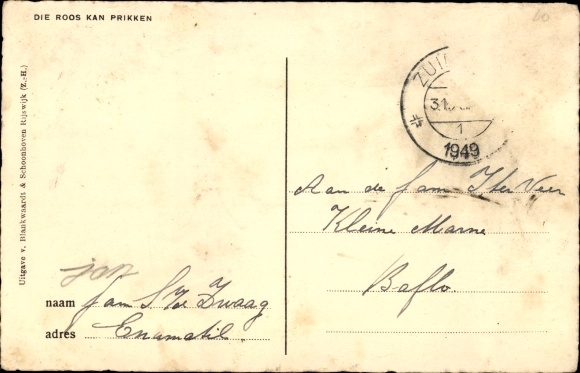 DIE ROOS KAN PRIKKEN
60
Uitgave v. Blankwaardt & Schoonhoven Rijswijk (Z.-H.)
ZUI
31
1
1949
Aan de fam Ter Veer
Kleine Marne
Baflo.
jan
naam fam S. v/d Zwaag
adres Enumatil.